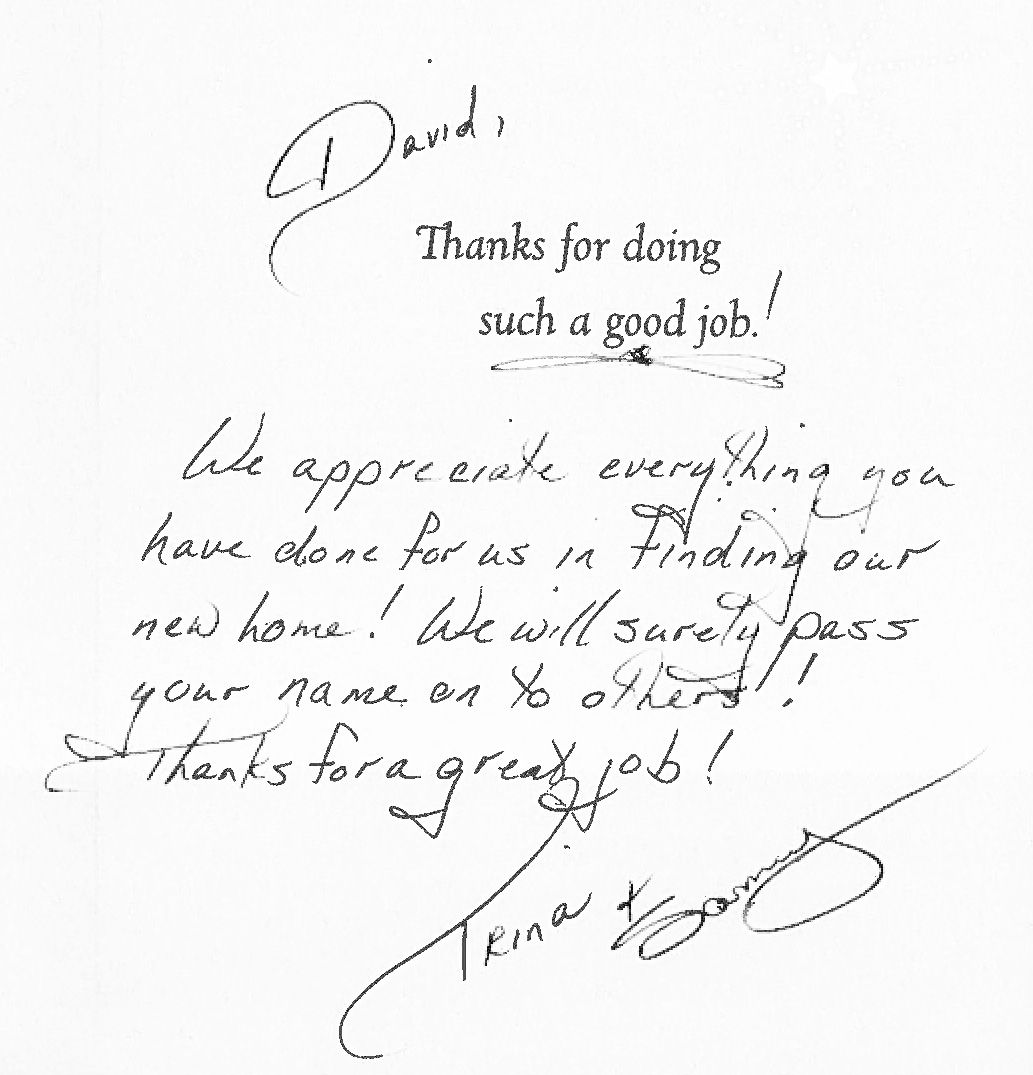 David,
Thanks for doing
such a good job.!
We appreciate everything you
have done for us in finding our
new home! We will surely pass
your name on to others!!
Thanks for a great job!
Trina & Sammy